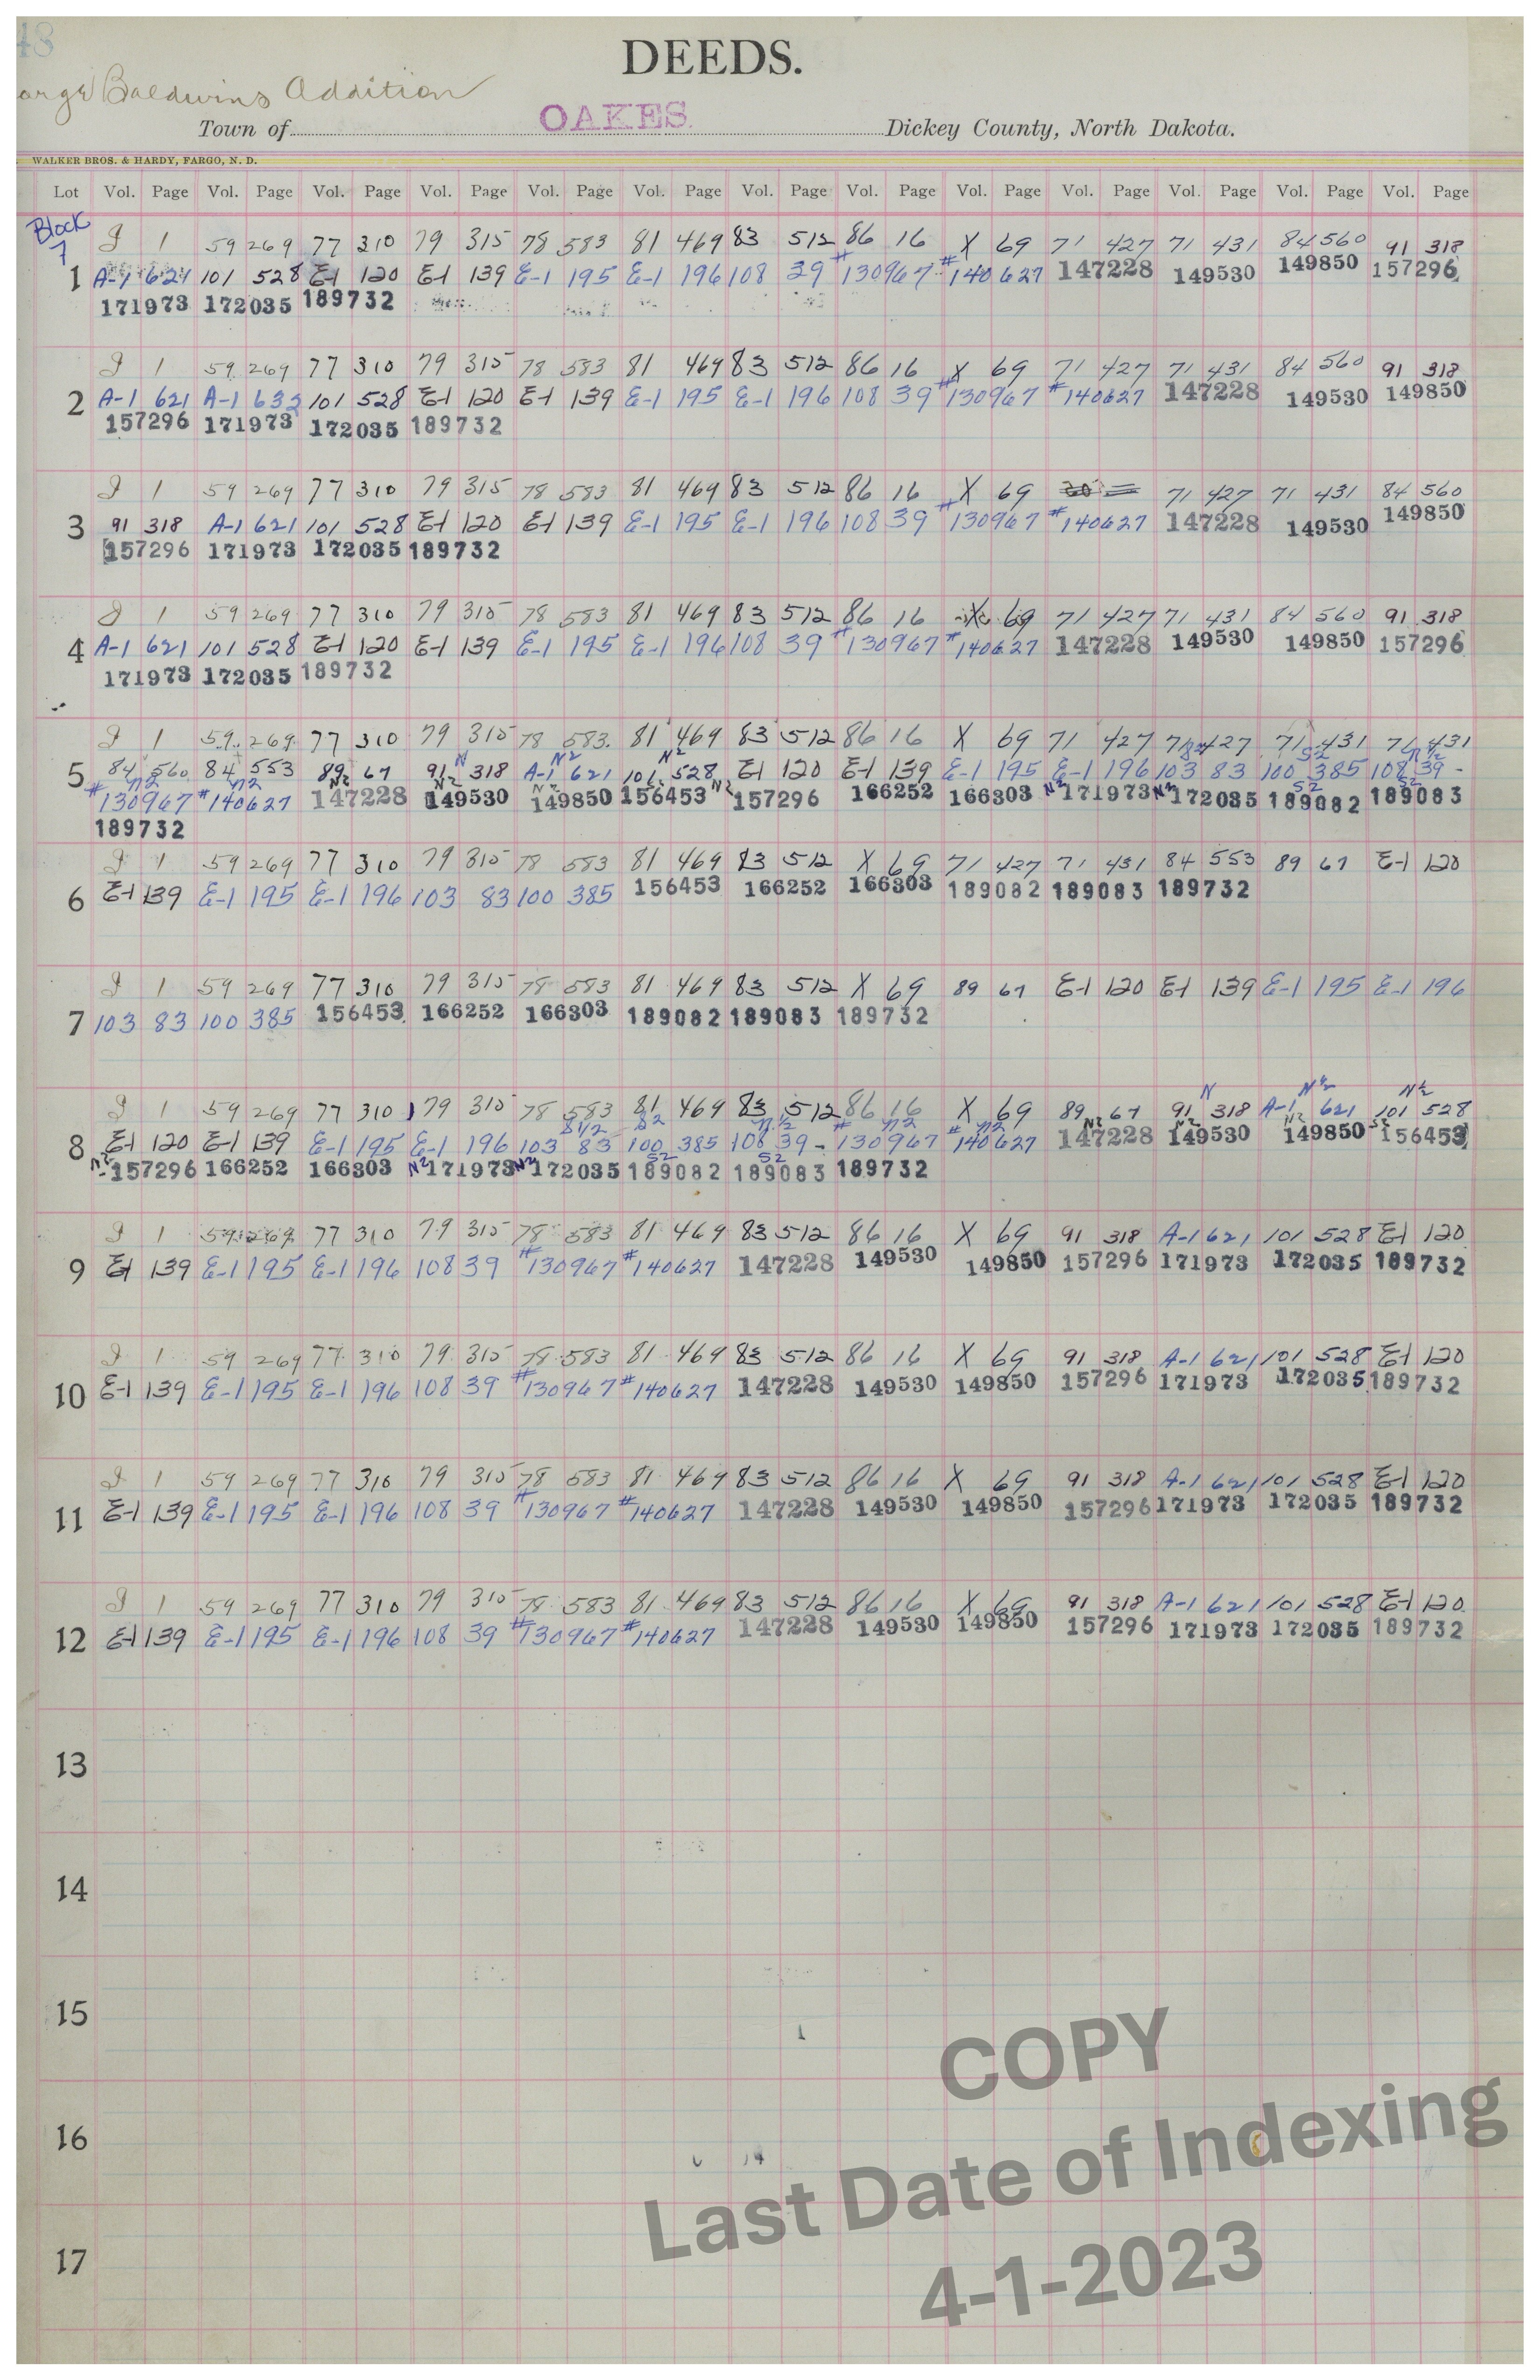 48
DEEDS.
Baldwins Addition
Town of OAKES Dickey County, North Dakota.
WALKER BROS. & HARDY, FARGO, N. D.
Lot Vol. Page Vol. Page Vol. Page Vol. Page Vol. Page Vol. Page Vol. Page Vol. Page Vol. Page Vol. Page Vol. Page Vol. Page Vol. Page
Block
7
1 59 269 77 310 79 315 78 583 81 469 83 512 86 16 X 69 71 427 71 431 84 560 91 318
1 A-1 621 101 528 E-1 120 E-1 139 E-1 195 E-1 196 108 39 #130967 #140627 147228 149530 149850 157296
171973 172035 189732
1 59 269 77 310 79 315 78 583 81 469 83 512 86 16 X 69 71 427 71 431 84 560 91 318
2 A-1 621 A-1 632 101 528 E-1 120 E-1 139 E-1 195 E-1 196 108 39 #130967 #140627 147228 149530 149850
157296 171973 172035 189732
1 59 269 77 310 79 315 78 583 81 469 83 512 86 16 X 69 71 427 71 431 84 560
3 91 318 A-1 621 101 528 E-1 120 E-1 139 E-1 195 E-1 196 108 39 #130967 #140627 147228 149530 149850
157296 171973 172035 189732
1 59 269 77 310 79 315 78 583 81 469 83 512 86 16 X 69 71 427 71 431 84 560 91 318
4 A-1 621 101 528 E-1 120 E-1 139 E-1 195 E-1 196 108 39 #130967 #140627 147228 149530 149850 157296
171973 172035 189732
1 59 269 77 310 79 315 78 583 81 469 83 512 86 16 X 69 71 427 71 427 71 431 71 431
N N2 N2 S2 N1/2
5 84 560 84 553 89 67 91 318 A-1 621 101 528 E-1 120 E-1 139 E-1 195 E-1 196 103 83 100 385 108 39 -
N2 N2 N2 N2 N2 S2 S2
#130967 #140627 147228 149530 149850 156453 N2 157296 166252 166303 N2 171973 N2 172035 189082 189083
189732
1 59 269 77 310 79 315 78 583 81 469 83 512 X 69 71 427 71 431 84 553 89 67 E-1 120
6 E-1 139 E-1 195 E-1 196 103 83 100 385 156453 166252 166303 189082 189083 189732
1 59 269 77 310 79 315 78 583 81 469 83 512 X 69 89 67 E-1 120 E-1 139 E-1 195 E-1 196
7 103 83 100 385 156453 166252 166303 189082 189083 189732
N N2 N2
1 59 269 77 310 79 315 78 583 81 469 83 512 86 16 X 69 89 67 91 318 A-1 621 101 528
S1/2 S2 N1/2 N2 N2 N2 N2 N2 S2
8 E-1 120 E-1 139 E-1 195 E-1 196 103 83 100 385 108 39 - #130967 #140627 147228 149530 149850 156453
N2 S2 S2
157296 166252 166303 N2 171973 N2 172035 189082 189083 189732
1 59 269 77 310 79 315 78 583 81 469 83 512 86 16 X 69 91 318 A-1 621 101 528 E-1 120
9 E-1 139 E-1 195 E-1 196 108 39 #130967 #140627 147228 149530 149850 157296 171973 172035 189732
1 59 269 77 310 79 315 78 583 81 469 83 512 86 16 X 69 91 318 A-1 621 101 528 E-1 120
10 E-1 139 E-1 195 E-1 196 108 39 #130967 #140627 147228 149530 149850 157296 171973 172035 189732
1 59 269 77 310 79 315 78 583 81 469 83 512 86 16 X 69 91 318 A-1 621 101 528 E-1 120
11 E-1 139 E-1 195 E-1 196 108 39 #130967 #140627 147228 149530 149850 157296 171973 172035 189732
1 59 269 77 310 79 315 78 583 81 469 83 512 86 16 X 69 91 318 A-1 621 101 528 E-1 120
12 E-1 139 E-1 195 E-1 196 108 39 #130967 #140627 147228 149530 149850 157296 171973 172035 189732
13
14
15
16
17
COPY
Last Date of Indexing
4-1-2023